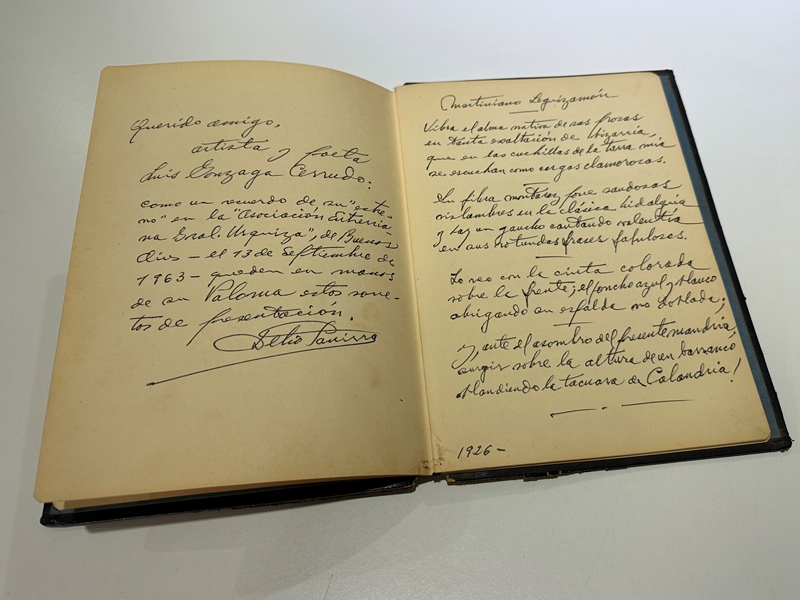 Querido amigo,
artista y poeta
Luis Gonzaga Cerrudo:
como un recuerdo de su "estre-
no" en la "Asociación Entrerria
na Gral. Urquiza", de Buenos
Aires - el 13 de Septiembre de
1963 - queden en manos
de su Paloma estos sone-
tos de presentación.
Delio Panizza
Martiniano Leguizamón
Vibra el alma nativa de sus prosas
en tanta exaltación de bizarría,
que en las cuchillas de la tierra mía
se escuchan como cargas clamorosas.
Su fibra montaraz pone sandosas
vislumbres en la clásica hidalguía
y hay un gaucho cantando valentía
en sus rotundas frases fabulosas.
Lo veo con la cinta colorada
sobre la frente; el poncho azul y blanco
abrigando su espalda no doblada;
y, ante el asombro del presente mandria,
surgir sobre la altura de un barranco
blandiendo la tacuara de Calandria!
1926-